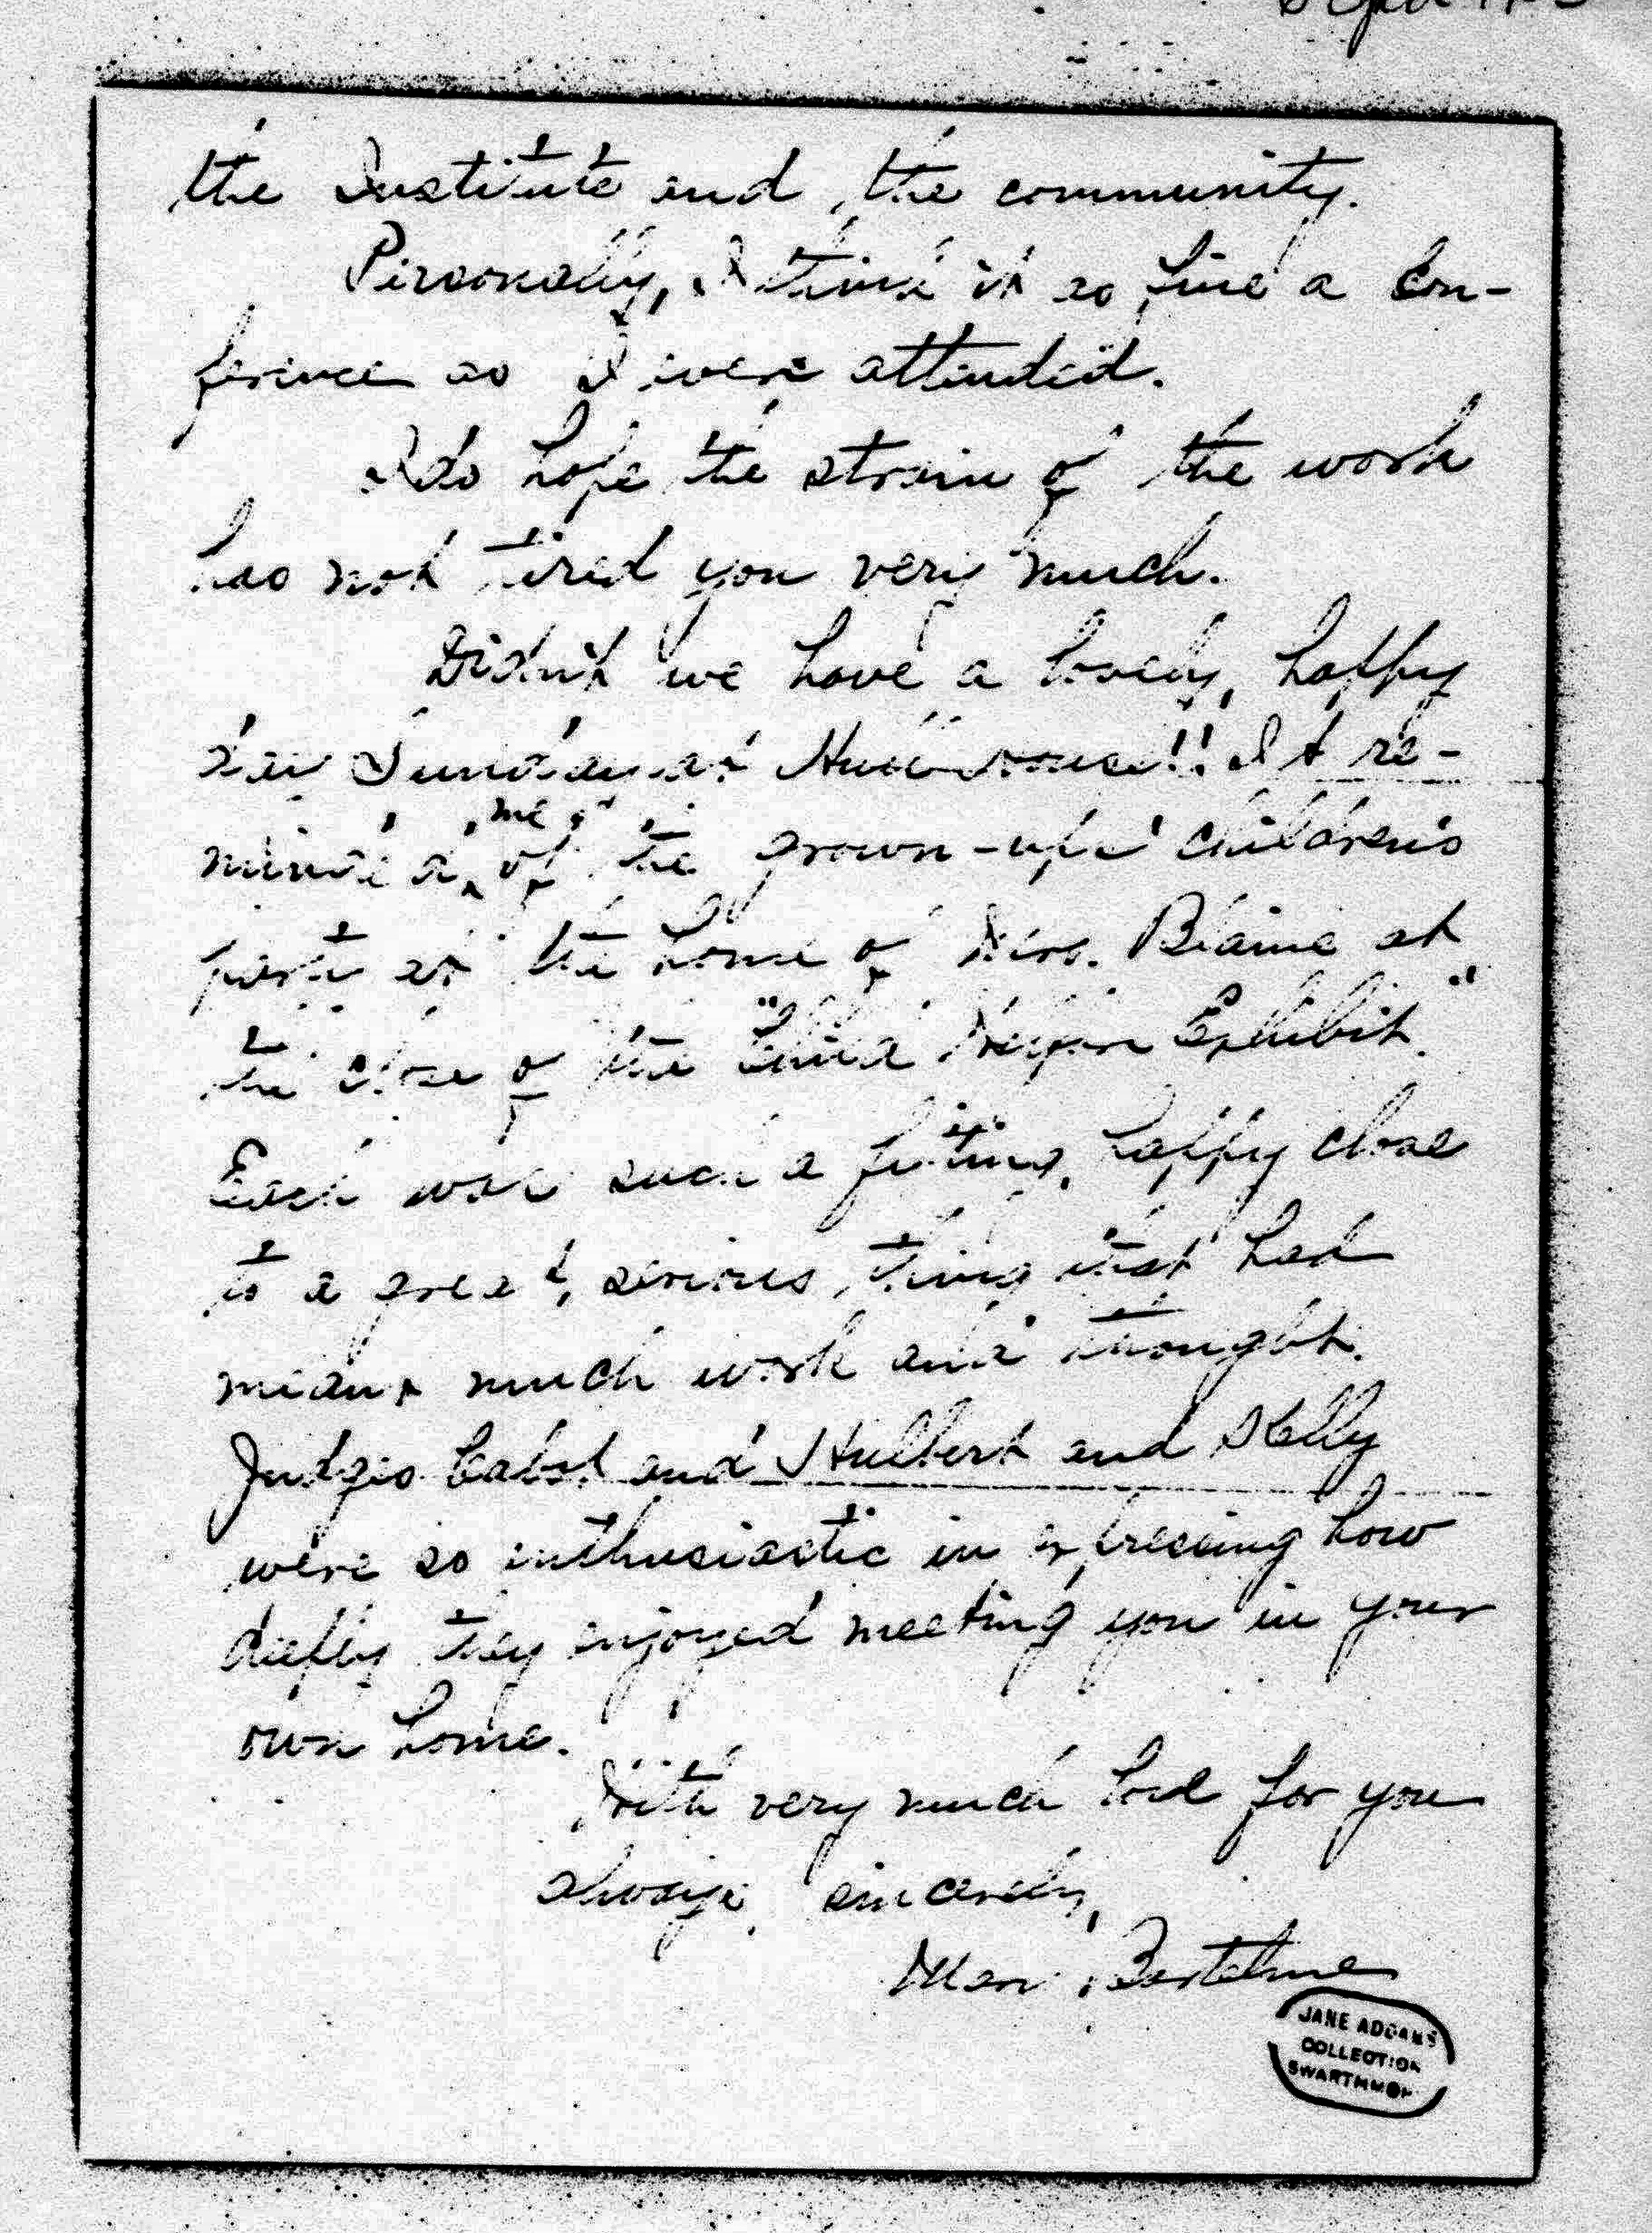 the Institute and the community.
Personally, I think it as fine a Con-
ference as I ever attended.
I do hope the strain of the work
has not tired you very much.
Didn't we have a lovely, happy
day Sunday at Hull-House!! It re-
minded me of the grown-ups' children's
party at the home of Mrs. Blaine at
the close of the "Child Welfare Exhibit."
Each was such a fitting, happy close
to a great, serious thing that had
meant much work and thought.
Judges Cabot and Hulbert and Kelly
were so enthusiastic in expressing how
deeply they enjoyed meeting you in your
own home.
With very much love for you
always, sincerely,
Mary Bartelme
JANE ADDAMS
COLLECTION
SWARTHMORE